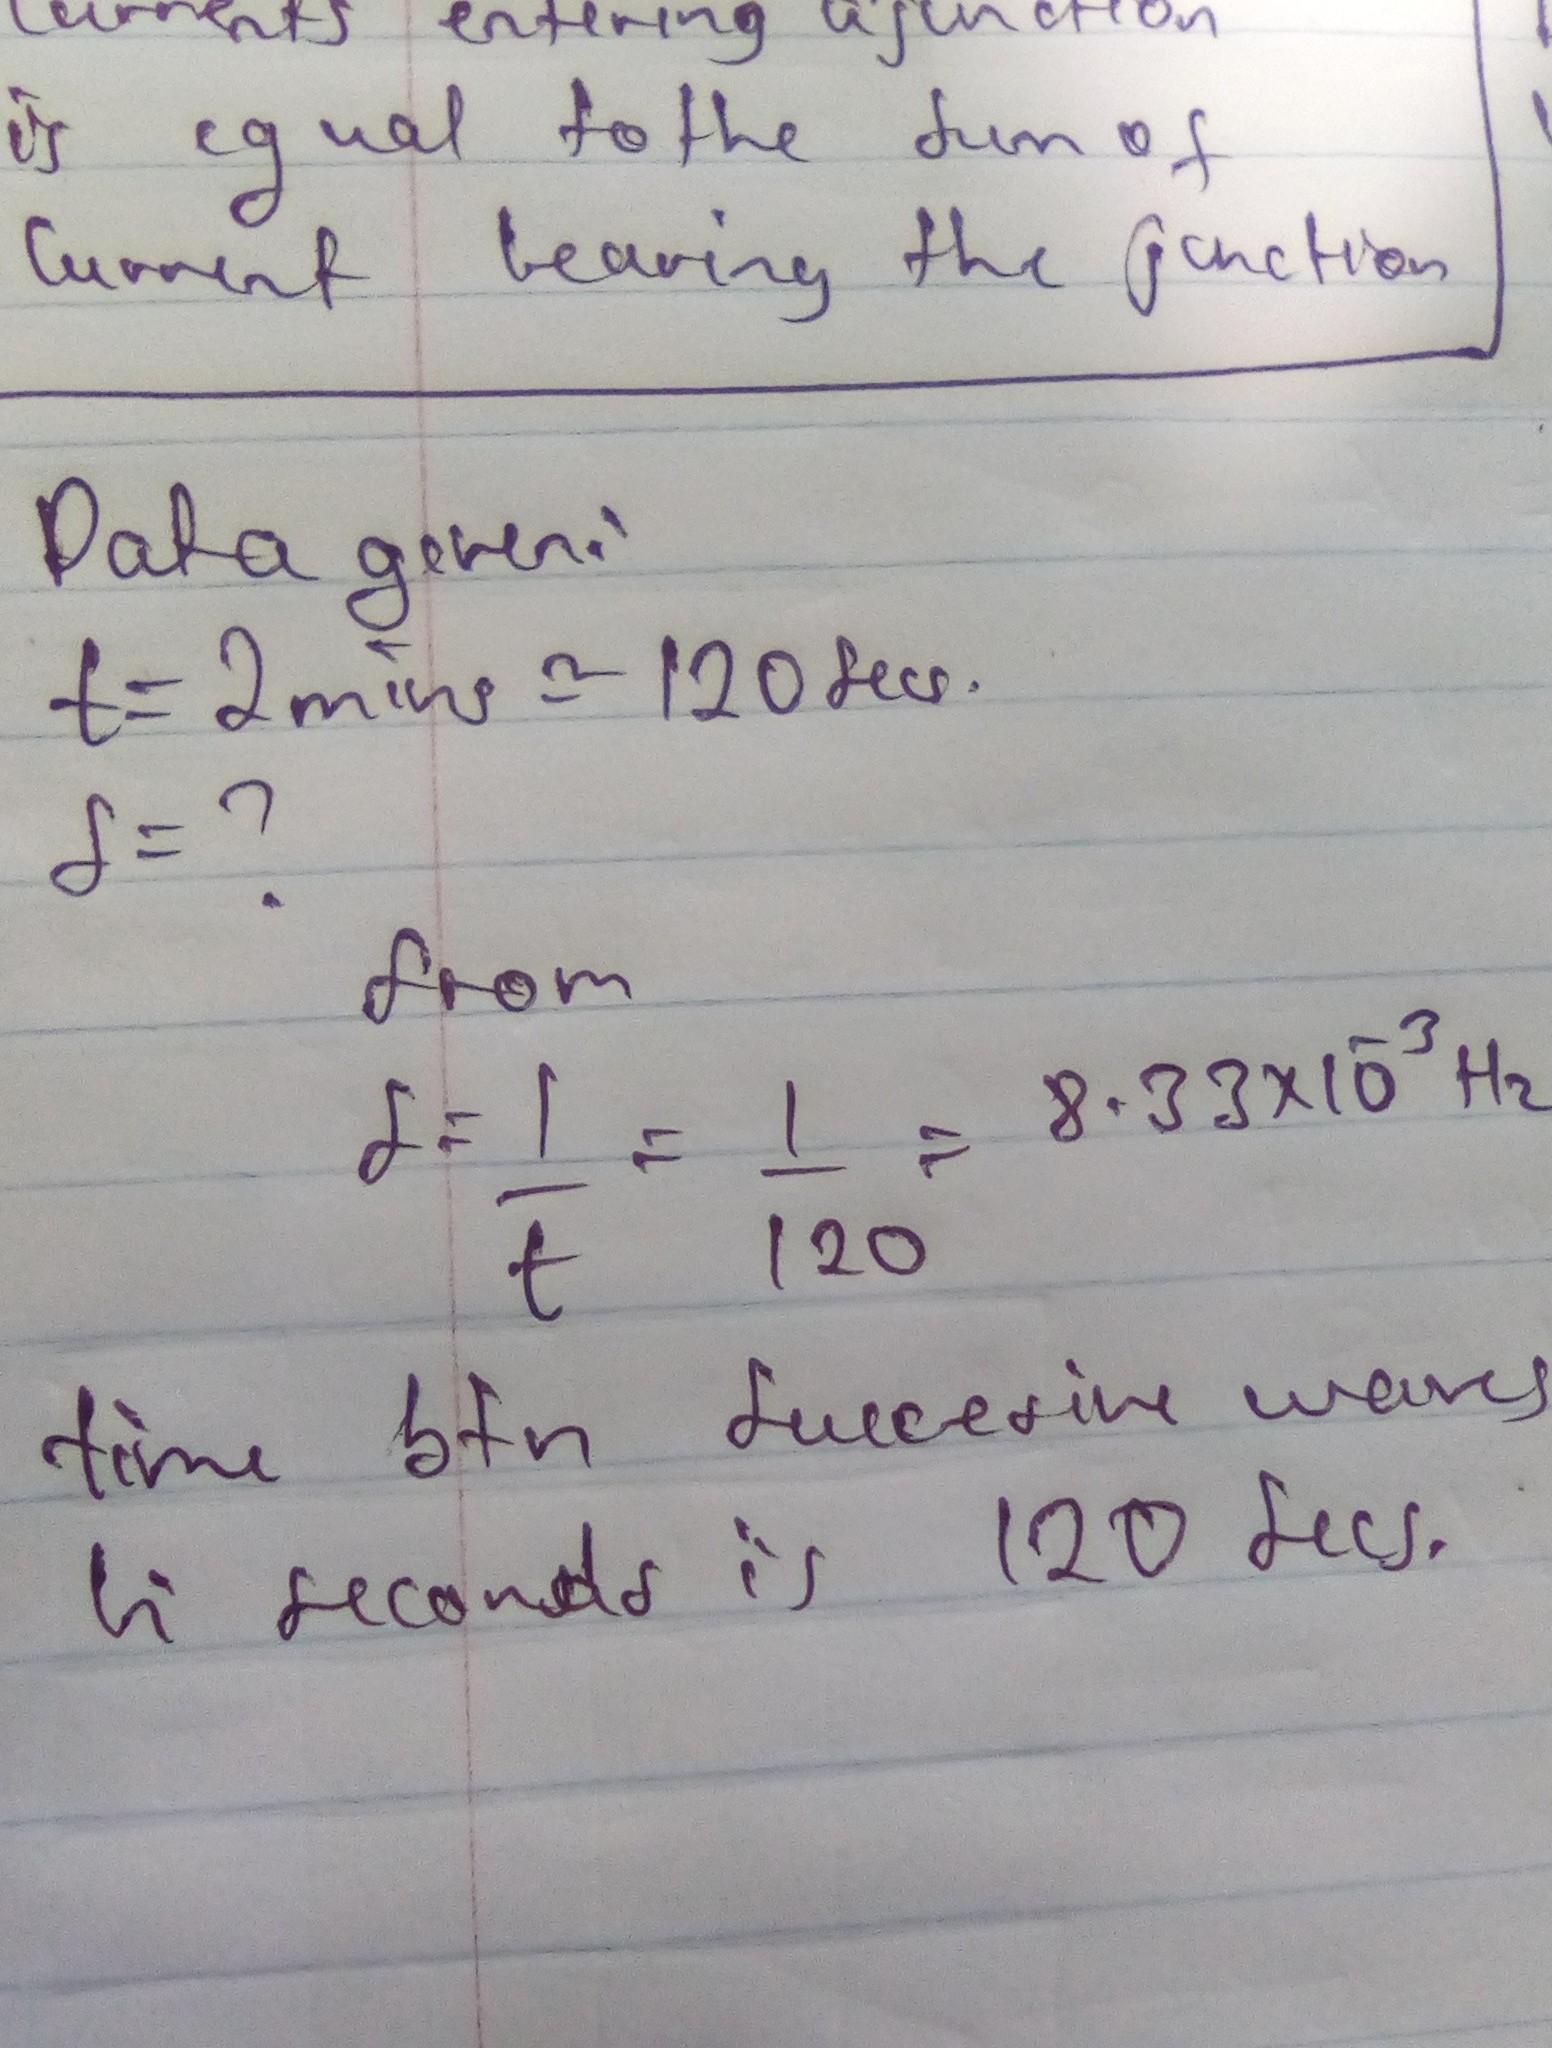 currents entering a junction
is equal to the sum of
Current leaving the junction
Data given:
t = 2 mins = 120 secs.
f = ?
from
f = 1/t = 1/120 = 8.33 x 10^-3 Hz
time btn succesive waves
in seconds is 120 secs.